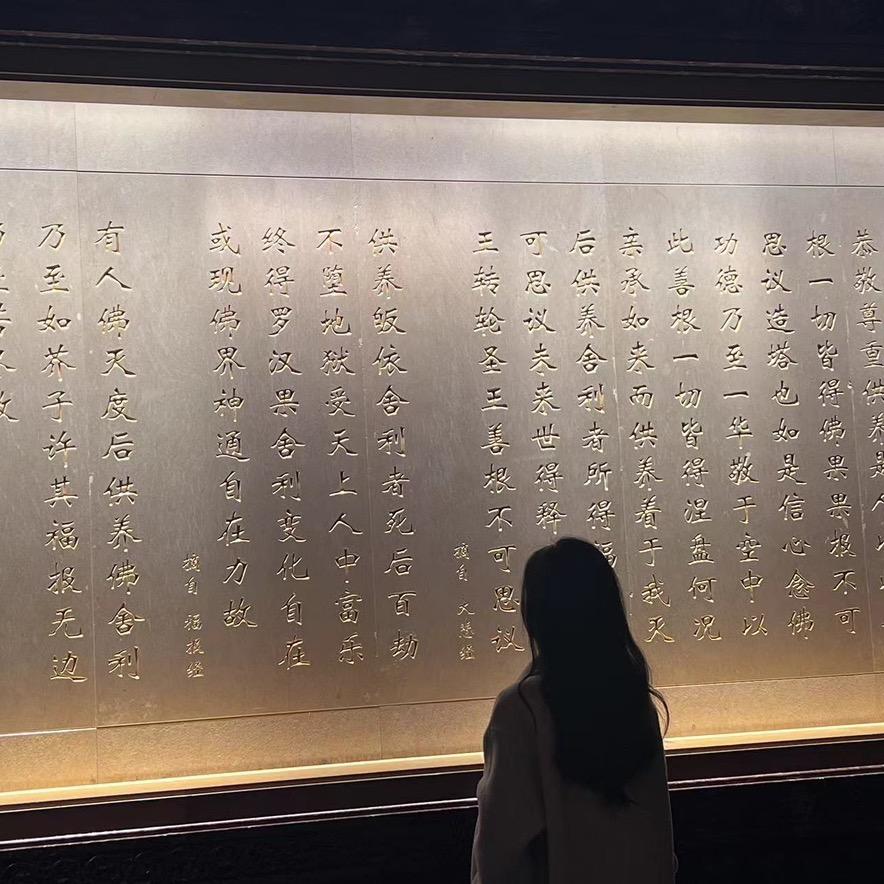 恭敬尊重供养是人
根一切皆得佛果果报不可
思议造塔也如是信心念佛
功德乃至一华敬于空中以
此善根一切皆得涅盘何况
亲承如来而供养着于我灭
后供养舍利者所得福
可思议未来世得释
王转轮圣王善根不可思议
摘自 大悲经
供养皈依舍利者死后百劫
不堕地狱受天上人中富乐
终得罗汉果舍利变化自在
或现佛界神通自在力故
摘自 福报经
有人佛灭度后供养佛舍利
乃至如芥子许其福报无边